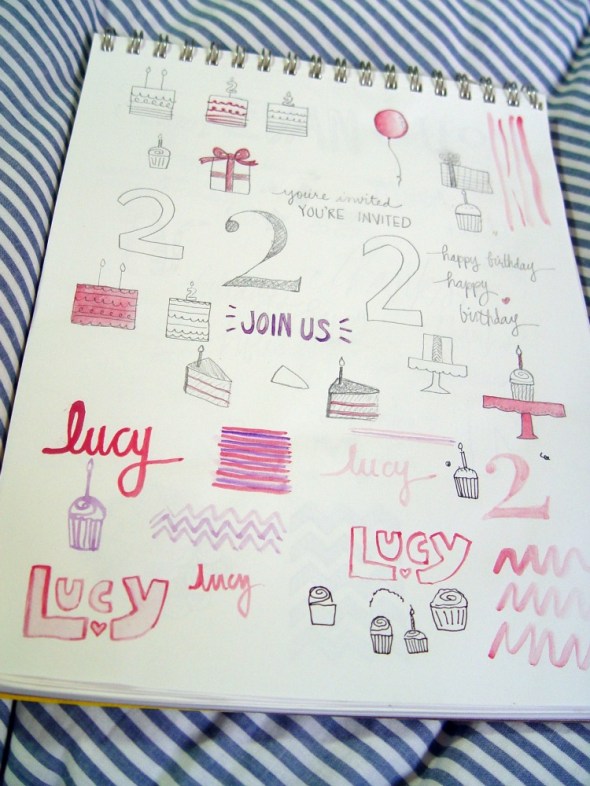 you're invited
YOU'RE INVITED
2
2
2
happy birthday
happy
birthday
JOIN US
lucy
lucy
2
LUCY
LUCY
lucy